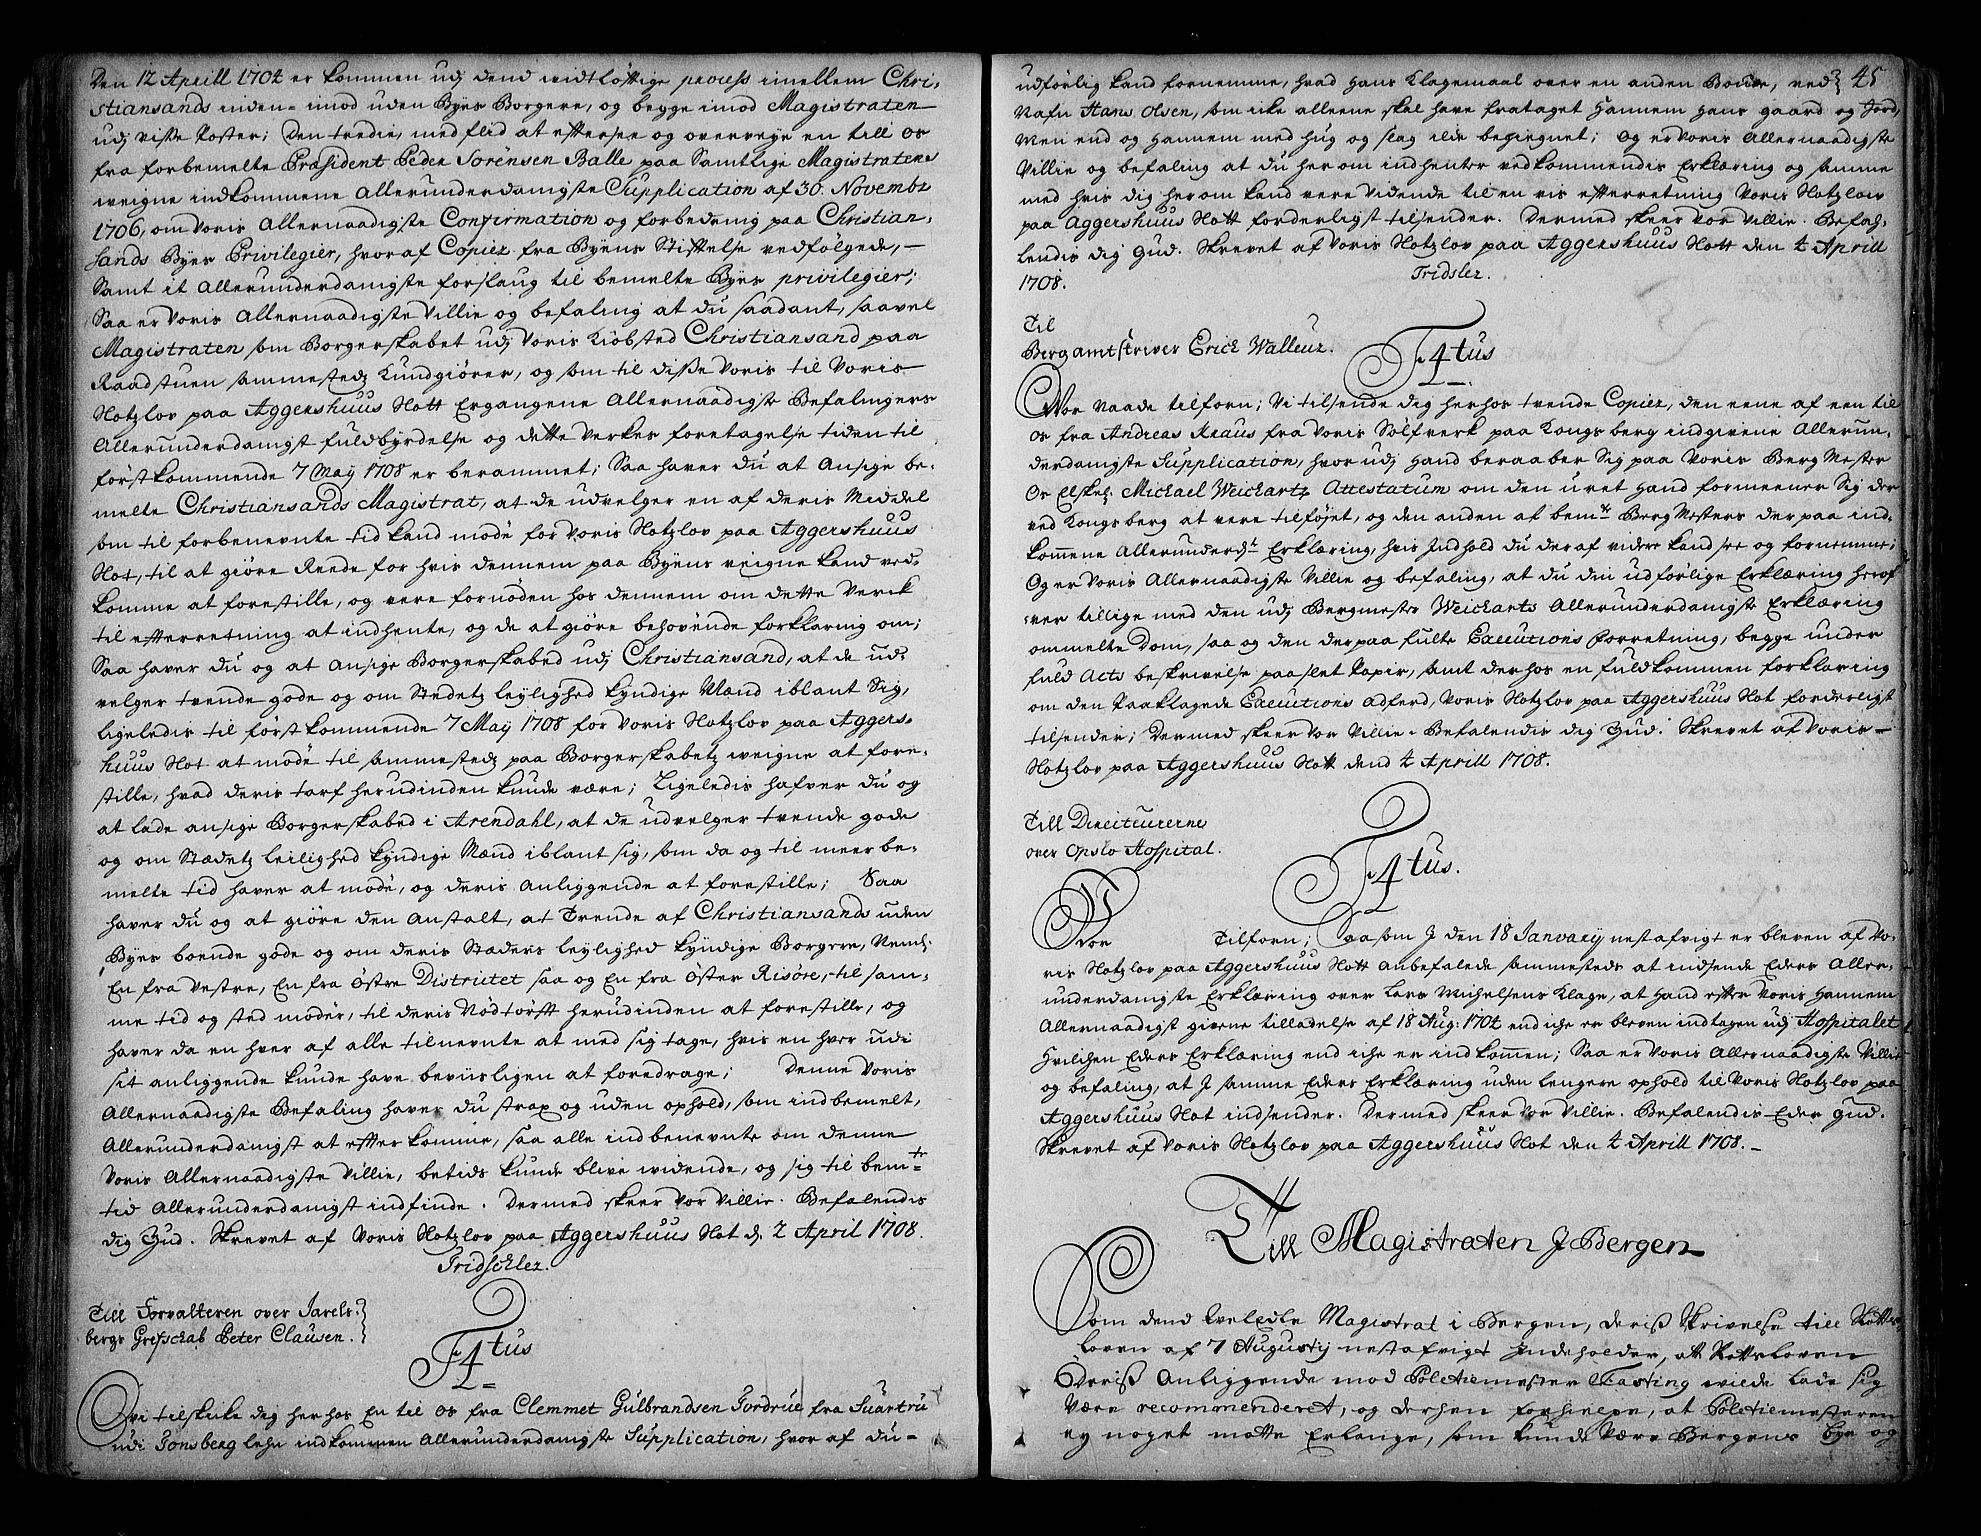 Den 12 Aprill 1704 er kommen udj dend widtløfftige process imellem Chri-
stiansands inden- imod uden Byes Borgere, og begge imod Magistraten
udj visse Poster; Den tredie, med flid at effterse og overveye en till os
fra forbemelte Præsident Peder Sörensen Balle paa Samtlige Magistratens
weigne indkommene Allerunderdanigste Supplication af 30. Novembr
1706, om Voris Allernaadigste Confirmation og forbedring paa Christian-
sands Byes Privilegier, hvoraf Copier fra Byens Stifftelse vedfölgede, —
Samt it Allerunderdanigste forslaug til bemelte Byes privilegier;
Saa er Voris Allernaadigste Villie og befaling at du saadant, saavel
Magistraten som Borgerskabet udj Voris Kiöbsted Christiansand paa
Raadstuen sammestedz Kundgiörer, og som til disse Voris til Voris
Slotzlov paa Aggershuus Slott Ergangene Allernaadigste Befalingers
Allerunderdanigst fuldbyrdelse og dette Verkes foretagelse tiden til
förstkommende 7 Maij 1708 er berammet; Saa haver du at Ansige be-
melte Christiansands Magistrat, at de udvelger en af deris Middel
som til forbenevnte tid kand möde for Voris Slotzlov paa Aggershuus
Slot, til at giöre Reede for hvis dennem paa Byens veigne kand ved-
komme at forestille, og vere fornöden hos dennem om dette Verck
til efterretning at indhente, og de at giöre behövende forklaring om;
Saa haver du og at Ansige Borgerskabed udj Christiansand, at de ud-
velger tvende gode og om Stedetz leylighed kyndige Mænd iblant Sig,
ligeledis til först kommende 7 Maij 1708 for Voris Slotzlov paa Aggers-
huus Slot at möde til sammestedz paa Borgerskabetz weigne at fore-
stille, hvad deris tarf herudinden kunde være; Ligeledis hafver du og
at lade ansige Borgerskabed i Arendahl, at de udvelger tvende gode
og om Stædetz leilighed kyndige Mænd iblant sig, som da og til meerbe-
melte tid haver at möde, og deris anliggende at forestille; Saa
haver du og at giöre den Anstalt, at Trende af Christiansands uden
Byes boende gode og om deris Stæders leylighed kyndige Borgere, Neml:
En fra Vestre, En fra östre Districtet saa og En fra öster Risöre, til sam-
me tid og sted möder, til deris Nödtörfft herudinden at forestille, og
haver da en hver af alle tilnevnte at med sig tage, hvis en hver udi
sit anliggende kunde have beviisligen at foredrage; Denne Voris
Allernaadigste Befaling haver du strax og uden ophold, som indbemelt,
Allerunderdanigst at efterkomme, saa alle indbenevnte om denne
Voris Allernaadigste Villie, betids kunde blive widende, og sig til bemte
tid Allerunderdanigst indfinde. Dermed skeer Vor Villie. Befalendis
dig Gud. Skrevet af Voris Slotzlov paa Aggershuus Slot d. 2 April 1708.
Fridschler.
Till Forvalteren over Jarels-
bergs Grefschab Peter Clausen.
F 4tus
Vi tilskicke dig herhos En til os fra Clemmet Gulbrandsen Fordrue fra Suartru
udi Tonsberg lehn indkommen Allerunderdanigste Supplication, hvor af du
45
udförlig kand fornemme, hvad hans Klagemaal over en anden Bonde, ved
Nafn Hans Olsen, som icke alleene skal have frataget hannem hans gaard og Jord,
Men end og hannem med hug og slag ilde begiegnet; Og er Voris Allernaadigste
Villie og befaling at du her om indhenter vedkommendis Erklæring og samme
med hvis dig herom kand vere vidende til en vis efterretning Voris Slotzlov
paa Aggershuus Slott forderligst tilsender. Dermed skeer Vor Villie. Befah-
lendis dig Gud. Skrevet af Voris Slotzlov paa Aggershuus Slott den 2 Aprill
1708. Fridsler.
Til
Bergamtskriver Erich Walleur.
F 4tus
Vor Naade tilforn; Vi tilsende dig herhos tvende Copier, den eene af een til
Os fra Andreas Kraus fra Voris Sölfverk paa Kongsberg indgivene Allerun-
derdanigste Supplication, hvor udj hand beraaber Sig paa Voris BergMester
Os Elskel: Michael Weichartz Attestatum om den uret hand formeener Sig der
ved Kongsberg at vere tilföjet, og den anden af bemte BergMesters der paa ind-
komene Allerunderdte Erklæring, hvis Indhold du deraf videre kand see og fornemme;
Og er Voris Allernaadigste Villie og befaling, at du din udförlige Erklæring her of-
ver tillige med den udj Bergmester Weicharts Allerunderdanigste Erklæring
ommelte Dom, saa og den derpaa fulte Executions Forretning, begge under
fuld Acts beskrivelse paa slet Papir, samt derhos en fuldkommen forklaring
om den Paaklagede Executions adferd, Voris Slotzlov paa Aggershuus Slot forderligst
tilsender; Dermed skeer Vor Villie. Befalendis dig Gud. Skrevet af Voris
Slotzlov paa Aggershuus Slott dend 2 Aprill 1708.
Till Directeurerne
over Opslo Hospital.
F 4tus.
Vor Tilforn; Saasom J den 18 Januarij nest afvigt er bleven af Vo-
ris Slotzlov paa Aggershuus Slott anbefalede sammesteds at indsende Eders Aller-
underdanigste Erklæring over Lars Michelsens Klage, at hand efter Voris Hannem
Allernaadigst givene tilladelse af 18 Aug: 1704 end icke er bleven indtagen udj Hospitalet
Hvilchen Eders Erklæring end iche er indkommen; Saa er Voris Allernaadigste Villie
og befaling, at J samme Eders Erklæring uden lengere ophold til Voris Slotzlov paa
Aggershuus Slot indsender. Dermed skeer Vor Villie. Befalendis Eder Gud.
Skrevet af Voris Slotzlov paa Aggershuus Slot den 2 Aprill 1708.
Till Magistraten J Bergen
Som dend Velædle Magistrat i Bergen, deriss Skrivelse till Slotts-
loven af 7 Augustij nestafvigt Indeholder, att Slottsloven
Deriss Anliggende mod Politiemester Fasting wilde lade sig
være recommenderet, og derhen forhielpe, at Politiemesteren
ey noget motte Erlange, som kunde være Bergens bye og